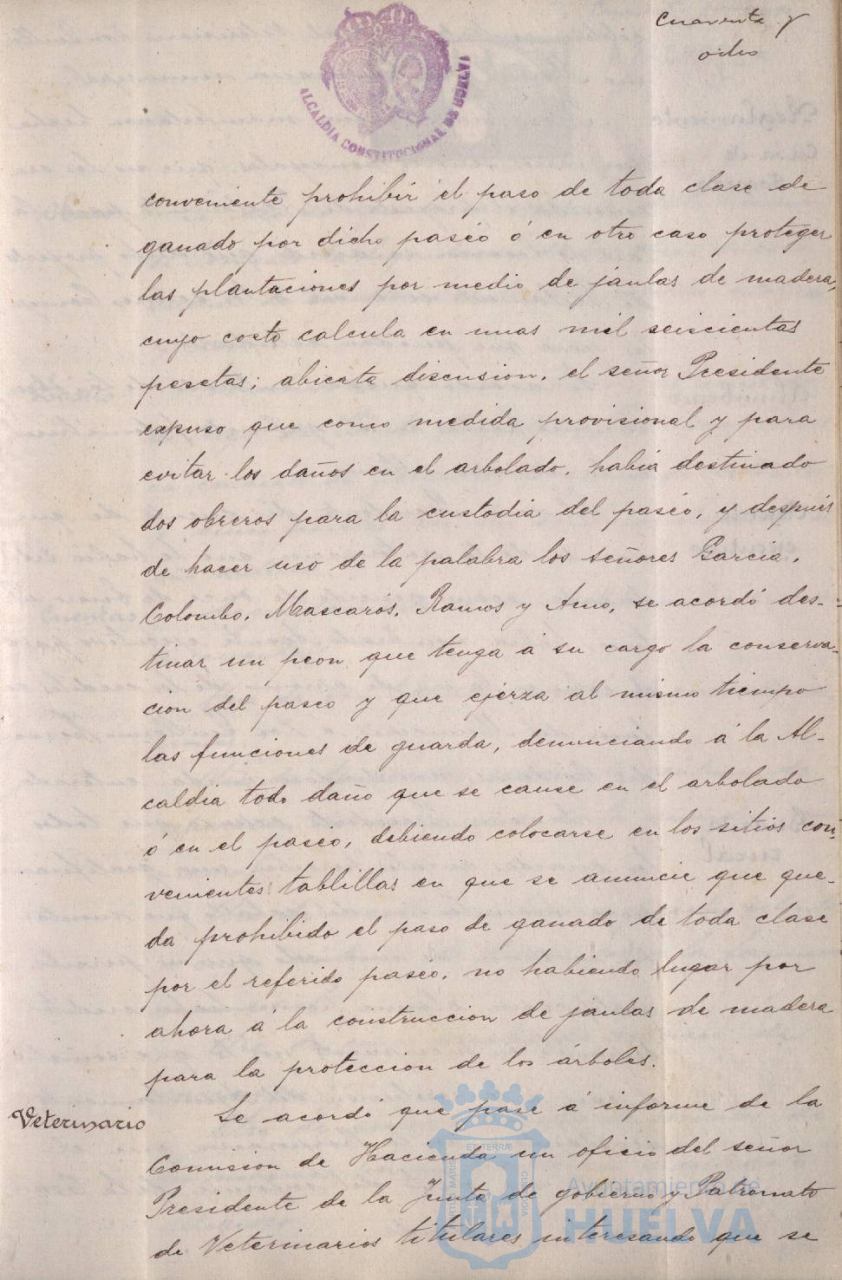 Cuarenta y
ocho
ALCALDIA CONSTITUCIONAL DE HUELVA
conveniente prohibir el paso de toda clase de
ganado por dicho paseo ó en otro caso proteger
las plantaciones por medio de jaulas de madera,
cuyo costo calcula en unas mil seiscientas
pesetas; abierta discusion, el señor Presidente
expuso que como medida provisional y para
evitar los daños en el arbolado, había destinado
dos obreros para la custodia del paseo, y después
de hacer uso de la palabra los señores Garcia,
Colombo, Mascarós, Ramos y Amo, se acordó des-
tinar un peon que tenga á su cargo la conserva-
cion del paseo y que ejerza al mismo tiempo
las funciones de guarda, denunciando á la Al-
caldia todo daño que se cause en el arbolado
ó en el paseo, debiendo colocarse en los sitios con-
venientes tablillas en que se anuncie que que-
da prohibido el paso de ganado de toda clase
por el referido paseo, no habiendo lugar por
ahora á la construccion de jaulas de madera
para la proteccion de los árboles.
Veterinario
Se acordó que pase á informe de la
Comision de Hacienda un oficio del señor
Presidente de la Junta de gobierno y Patronato
de Veterinarios titulares interesando que se
Ayuntamiento de
HUELVA